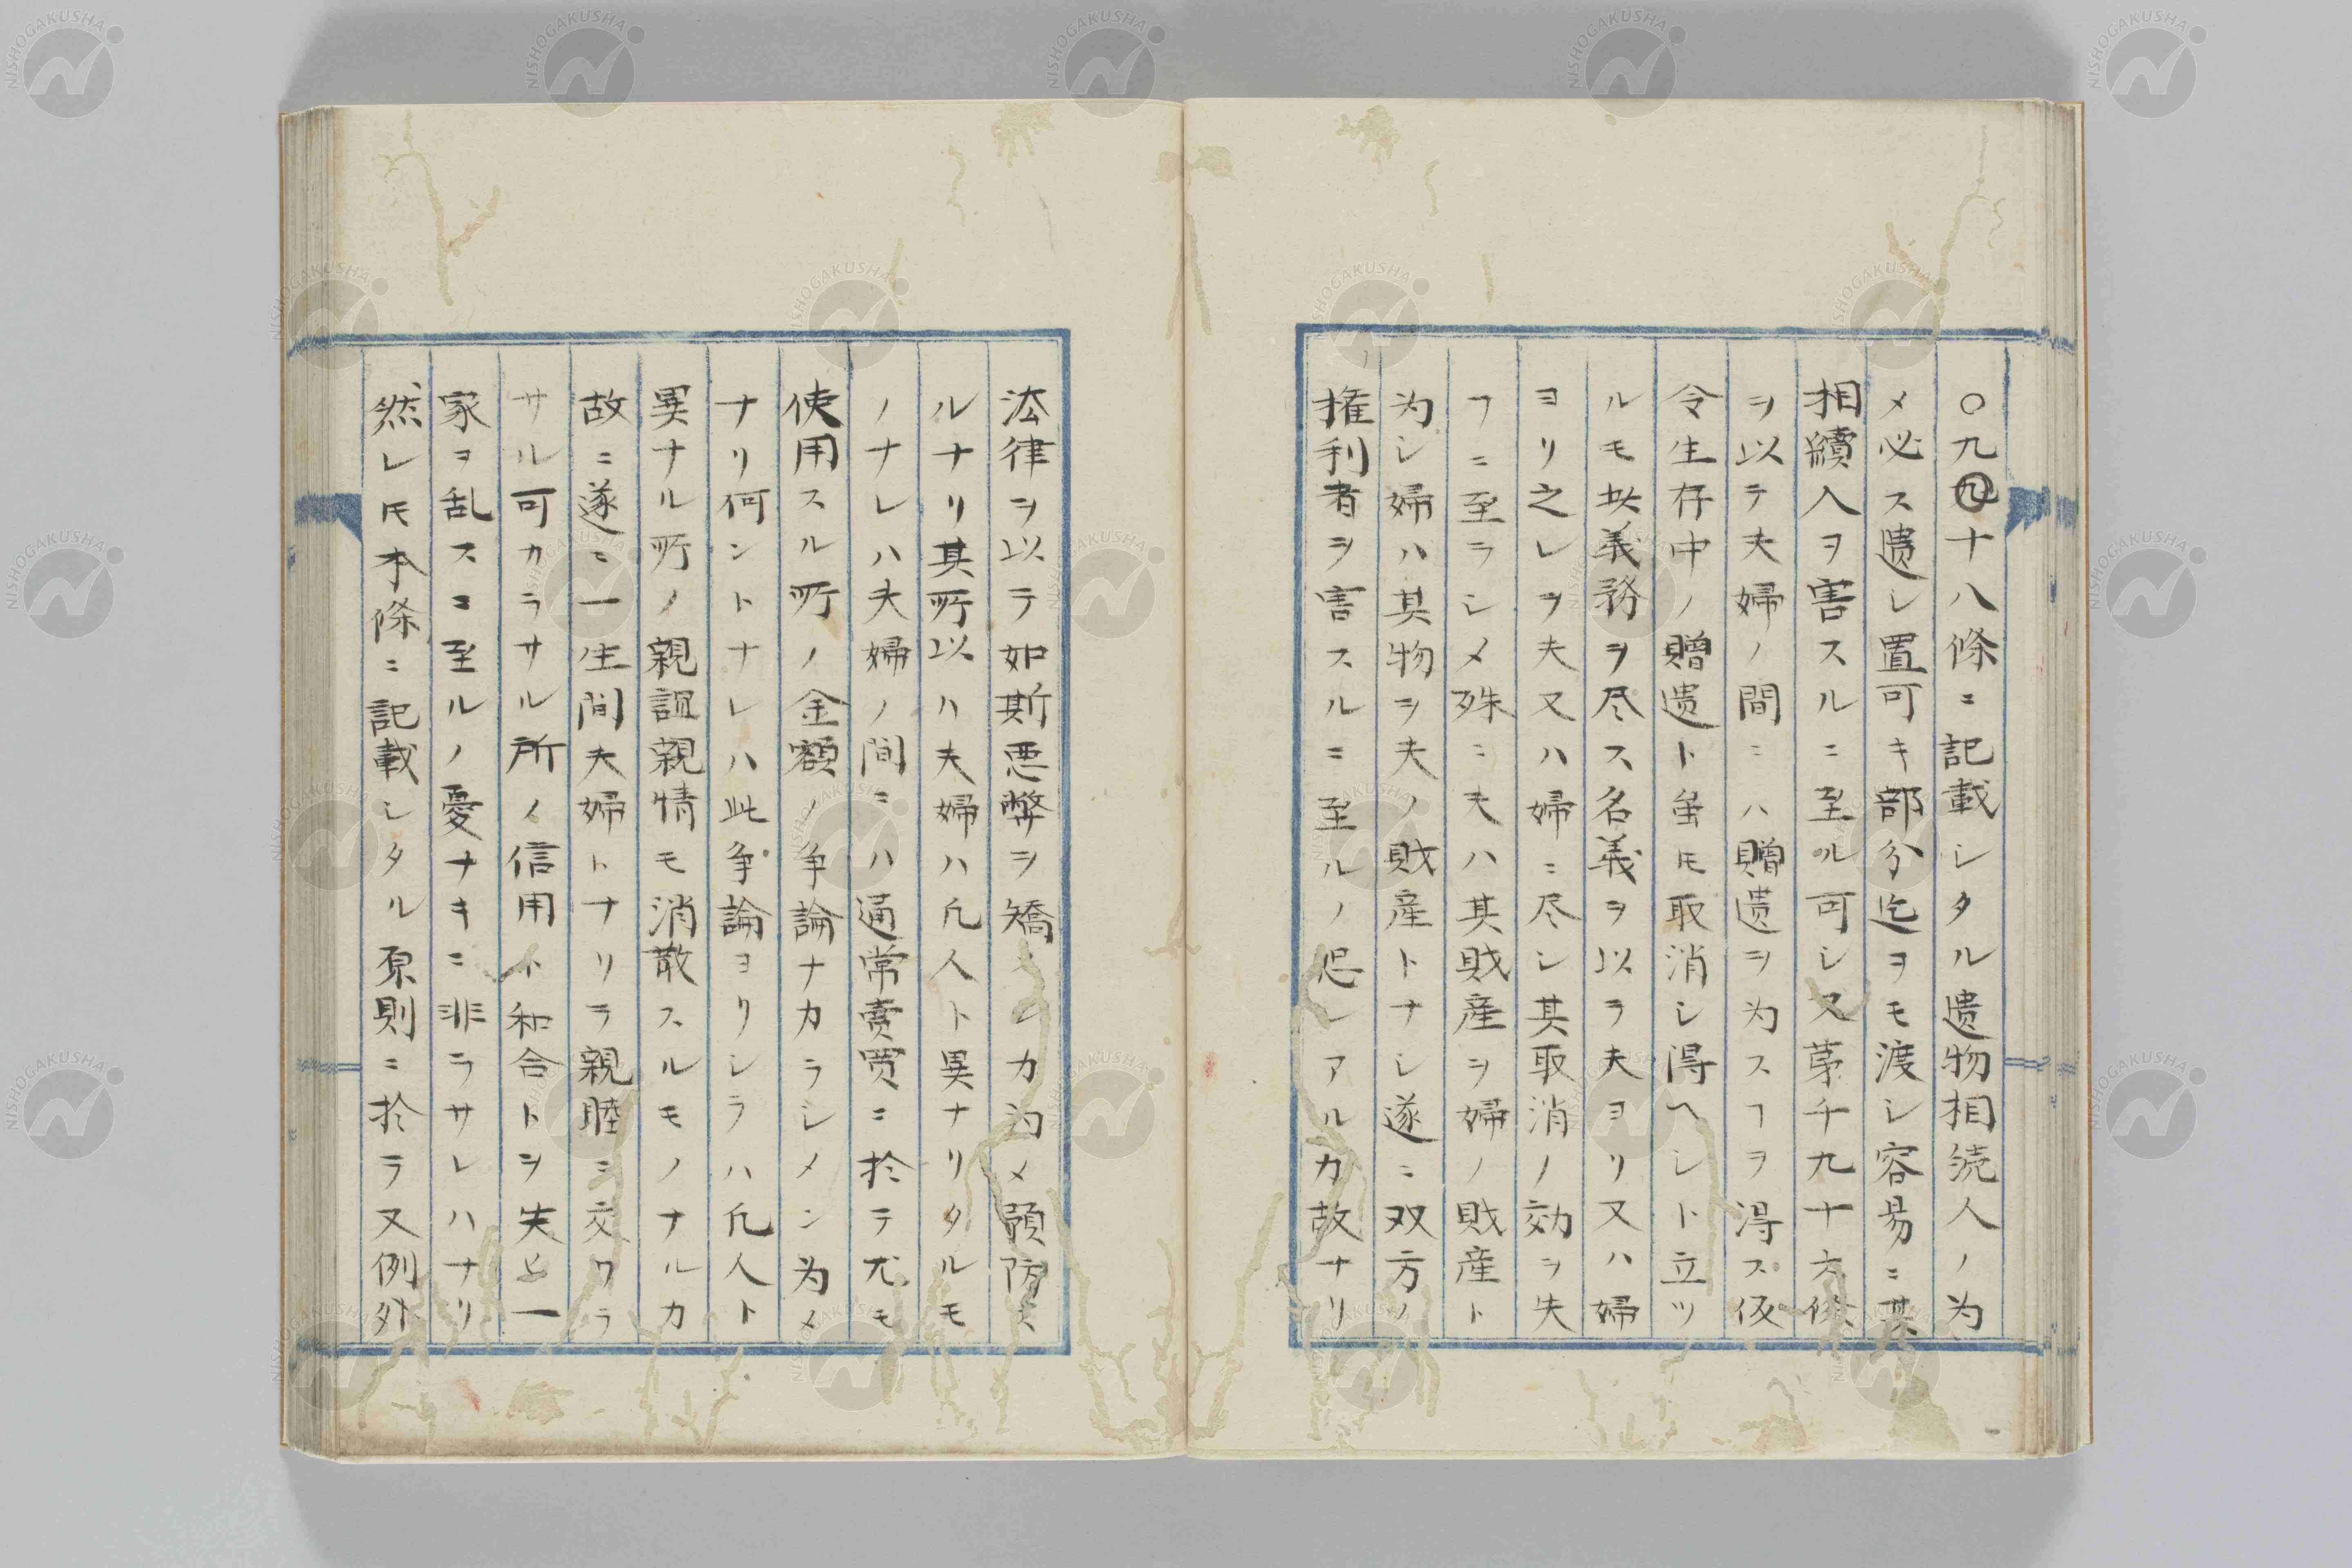 〇九九十八條ニ記載シタル遺物相続人ノ為
メ必ス遺シ置可キ部分迄ヲモ渡シ容易ニ其
相續人ヲ害スルニ至ル可シ又苐千九十六條
ヲ以テ夫婦ノ間ニハ贈遺ヲ為スヿヲ得ス仮
令生存中ノ贈遺ト虽𪜈取消シ得ヘシト立ツ
ルモ此義務ヲ尽ス名義ヲ以テ夫ヨリ又ハ婦
ヨリ之レヲ夫又ハ婦ニ尽シ其取消ノ効ヲ失
フニ至ラシメ殊ニ夫ハ其財産ヲ婦ノ財産ト
為シ婦ハ其物ヲ夫ノ財産トナシ遂ニ双方ノ
権利者ヲ害スルニ至ルノ恐レアルカ故ナリ
法律ヲ以テ如斯悪弊ヲ矯カ為メ預防ス
ルナリ其所以ハ夫婦ハ凡人ト異ナリタルモ
ノナレハ夫婦ノ間ニハ通常賣買ニ於テ尤モ
使用スル所ノ金額ノ争論ナカラシメン為メ
ナリ何ントナレハ此争論ヨリシテハ凡人ト
異ナル所ノ親誼親情モ消散スルモノナルカ
故ニ遂ニ一生間夫婦トナリテ親睦ミ交ワラ
サル可カラサル所ノ信用ト和合トヲ失ヒ一
家ヲ乱スニ至ルノ憂ナキニ非ラサレハナリ
然レ𪜈本條ニ記載シタル原則ニ於テ又例外